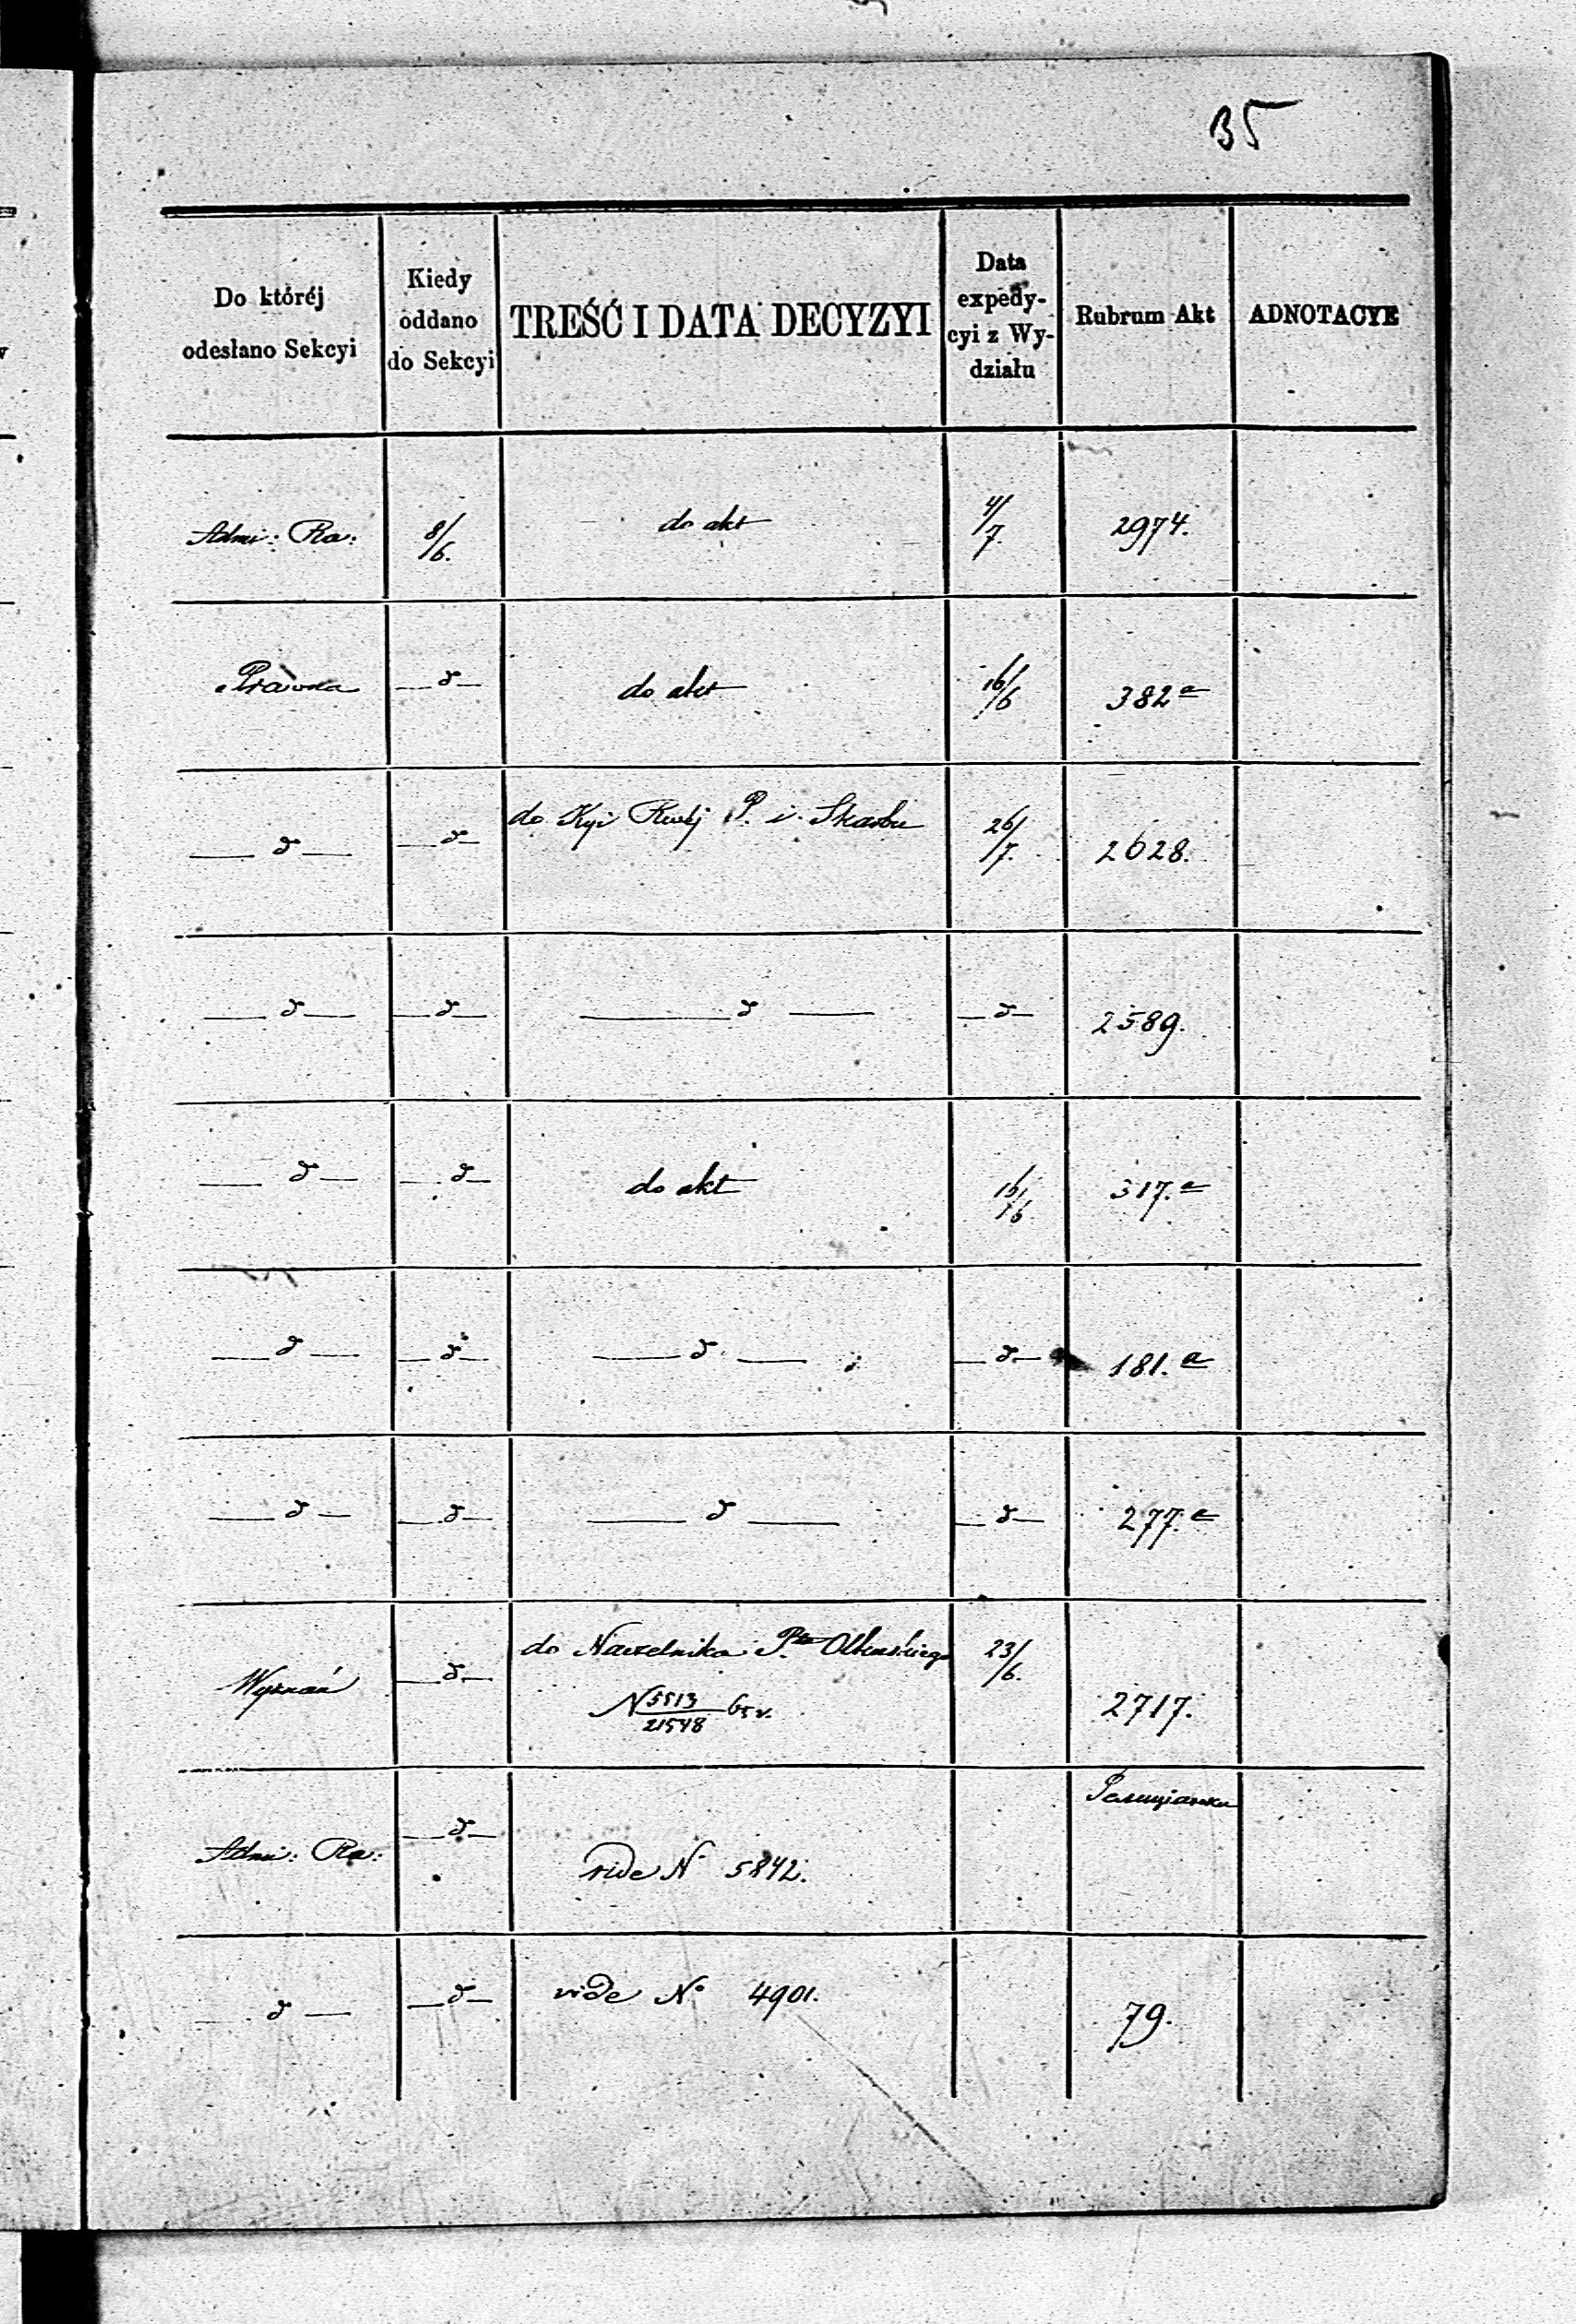 35
Do któréj odesłano Sekcyi | Kiedy oddano do Sekcyi | TREŚĆ I DATA DECYZYI | Data expedycyi z Wydziału | Rubrum Akt | ADNOTACYE
Admi: Ra: | 8/6. | do akt | 4/7. | 2974.
Prawna | —d— | do akt | 16/6 | 382 a
—d— | —d— | do Kyi Rwéj P. i Skarbu | 26/7. | 2628.
—d— | —d— | —d— | —d— | 2589.
—d— | —d— | do akt | 16/6 | 317. a
—d— | —d— | —d— | —d— | 181. a
—d— | —d— | —d— | —d— | 277. a
Wyznań | —d— | do Naczelnika Ptu Olkuskiego | 23/6. | 2717.
N 5513/21548
Admi: Ra: | —d— | vide N 5842.
—d— | —d— | vide No 4901. | 79.